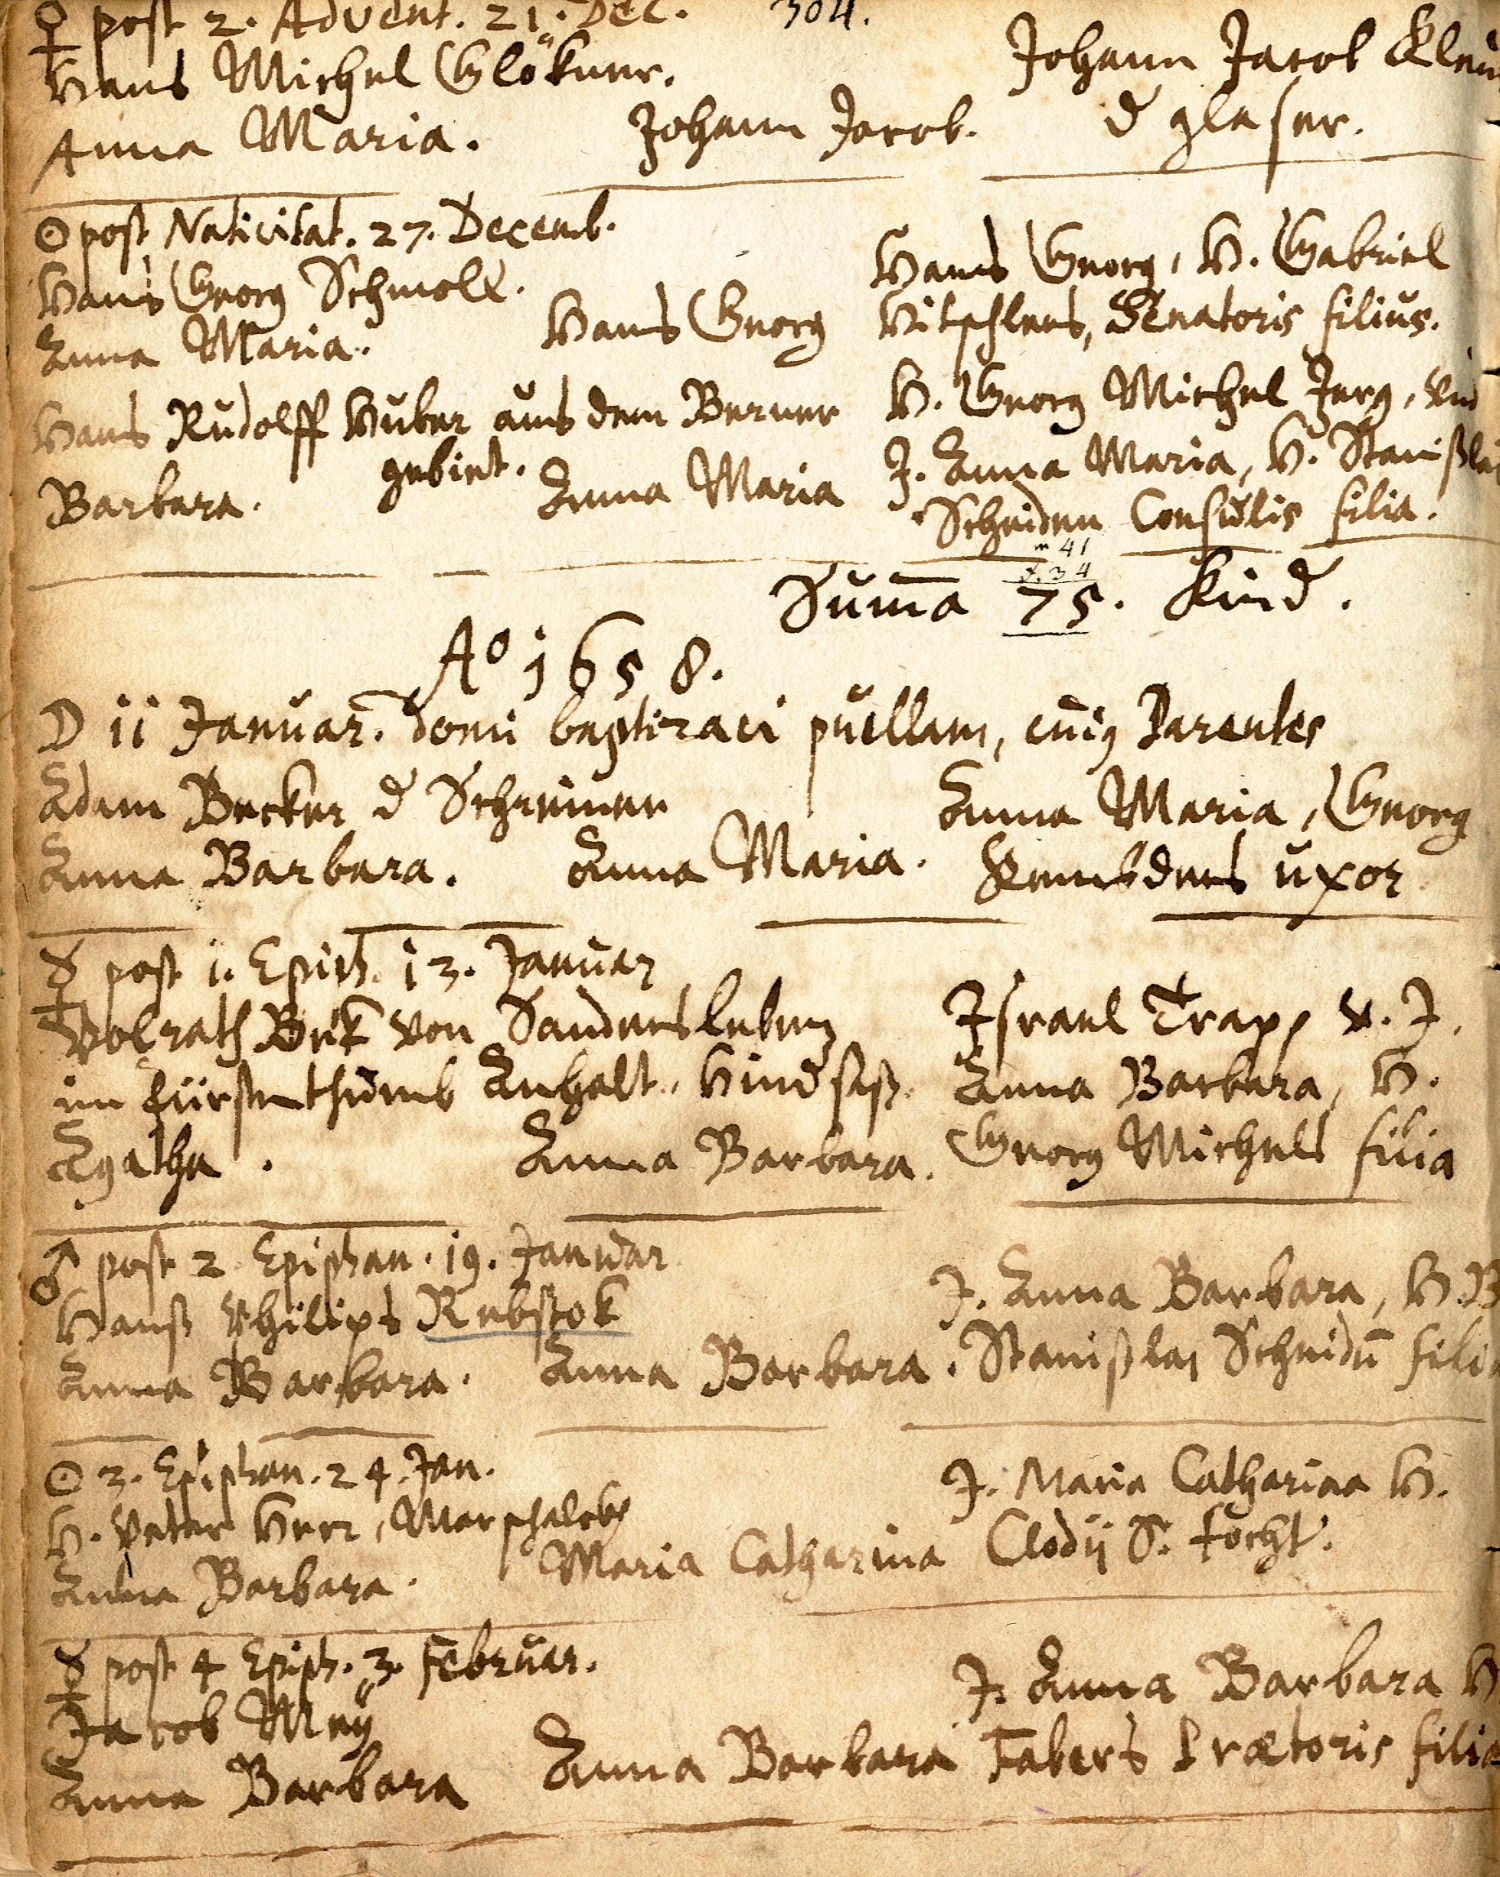 ♀ post 2. Advent. 21. Dec. 304.
Hans Michel Glökner. Johann Jacob
Anna Maria. Johann Jacob. d glaser.
☉ post Nativitat. 27. Decemb.
Hans Georg Schmoll. Hans Georg, H. Gabriel
Anna Maria. Hans Georg Vitschlens, Senatoris filius.
Hans Rudolff Huber aus dem Berner H. Georg Michel Jerg, und
gebiet.
Barbara. Anna Maria J. Anna Maria, H. Stanißlai
Scheiden Consulis filia.
m 41
f. 34
Suma 75. Kind.
Ao 1658.
D 11 Januar. domi baptizavi puellam, cuiꝫ Parentes
Adam Becker d Schreiner Anna Maria, Georg
Anna Barbara. Anna Maria. uxor
☿ post 1. Epiph. 13. Januar
Volrath Bek von Sandersleben Israel Trapp v. J.
im Fürstenthumb Anhalt, Hindsaß. Anna Barbara, H.
Agatha. Anna Barbara. Georg Michels filia
♂ post 2 Epiphan. 19. Januar
Hanß Philips Rebstok J. Anna Barbara, H. B
Anna Barbara. Anna Barbara. Stanißlai Scheidn̄ filia
☉ 3. Epiphan. 24. Jan.
H. Veter Herr, Marschalck J. Maria Catharina H.
Anna Barbara. Maria Catharina Clodii S. tocht.
☿ post 4 Epiph. 3. Februar.
Jacob Meÿ J. Anna Barbara H
Anna Barbara Anna Barbara Fabers Prætoris filia